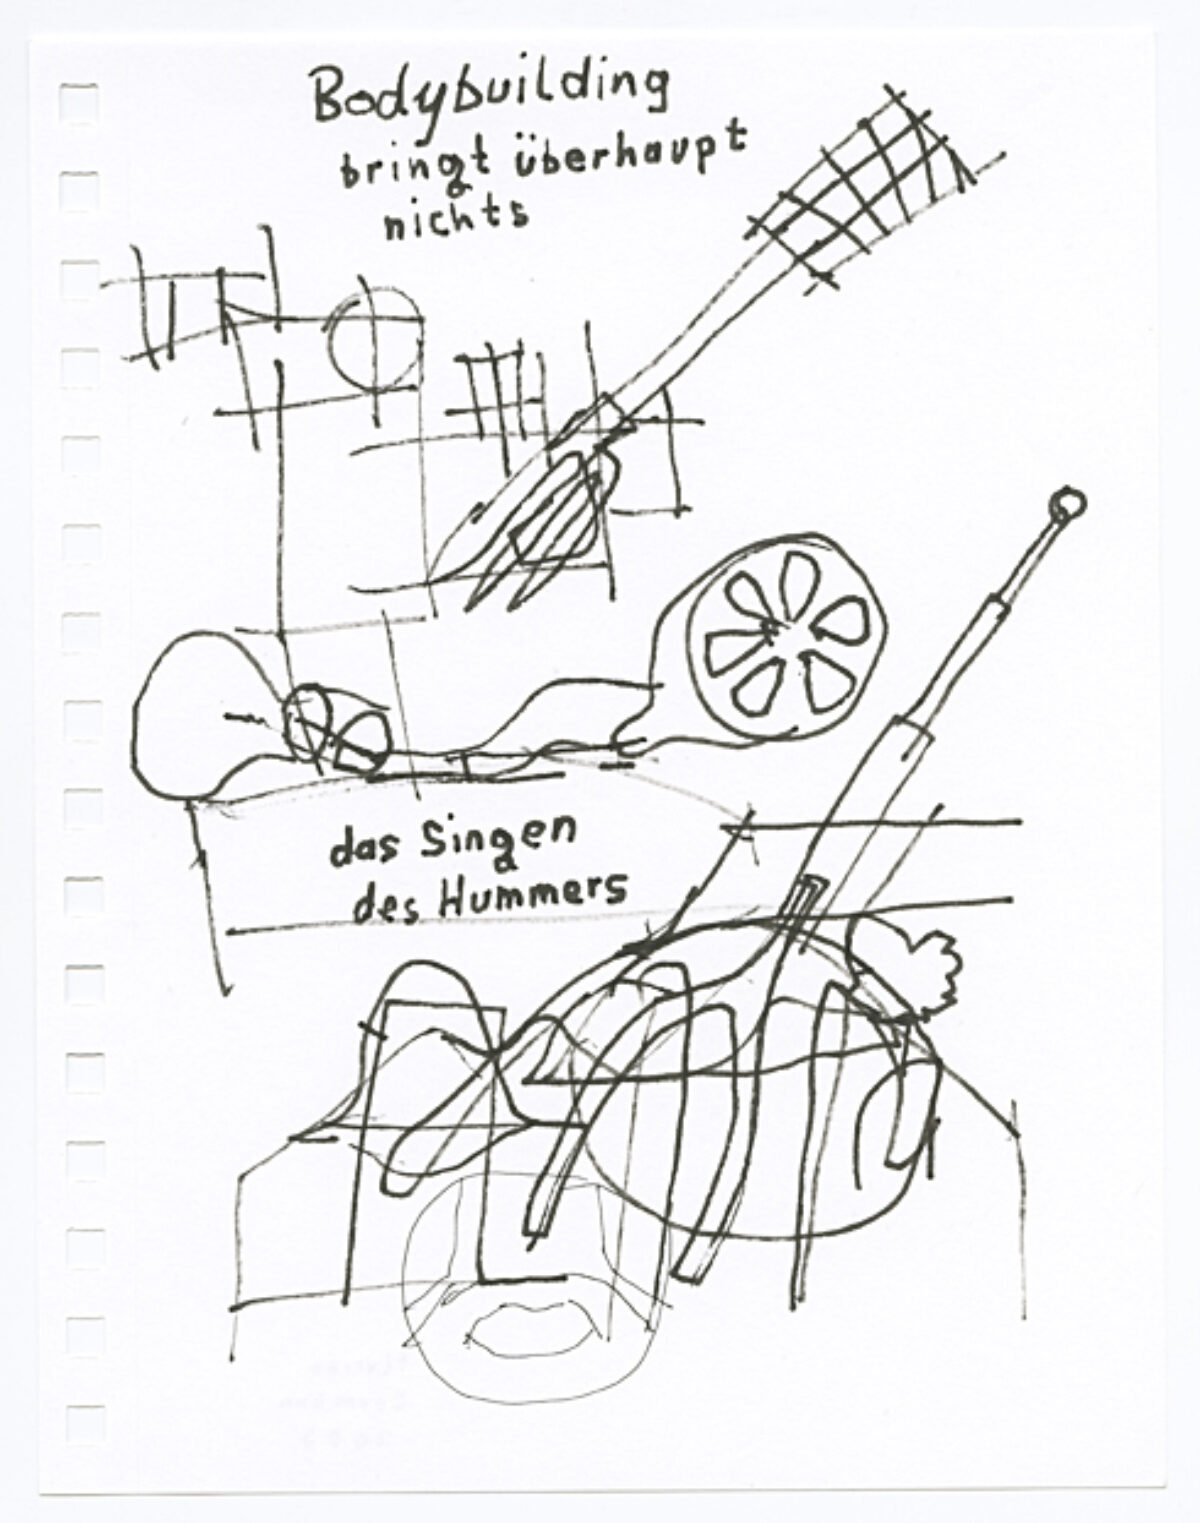 Bodybuilding
bringt überhaupt
nichts
das Singen
des Hummers